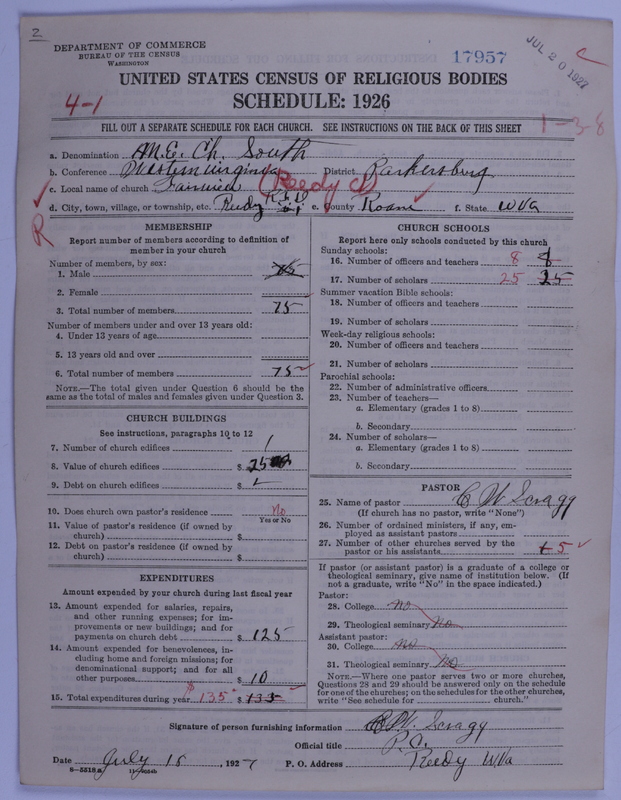 2
DEPARTMENT OF COMMERCE
BUREAU OF THE CENSUS
WASHINGTON
17957
JUL 20 1927
C
UNITED STATES CENSUS OF RELIGIOUS BODIES
4-1
SCHEDULE: 1926
1-3-8
FILL OUT A SEPARATE SCHEDULE FOR EACH CHURCH. SEE INSTRUCTIONS ON THE BACK OF THIS SHEET
a. Denomination M.E. Ch. South
b. Conference Western Virginia District Parkersburg
c. Local name of church Fairview (Reedy C)
d. City, town, village, or township, etc. Reedy R.F.D e. County Roane f. State W Va
R
MEMBERSHIP
Report number of members according to definition of member in your church
Number of members, by sex:
1. Male 75
2. Female
3. Total number of members 75
Number of members under and over 13 years old:
4. Under 13 years of age
5. 13 years old and over
6. Total number of members 75
NOTE.—The total given under Question 6 should be the same as the total of males and females given under Question 3.
CHURCH BUILDINGS
See instructions, paragraphs 10 to 12
7. Number of church edifices 1
8. Value of church edifices $
9. Debt on church edifices $
10. Does church own pastor's residence No
Yes or No
11. Value of pastor's residence (if owned by church) $
12. Debt on pastor's residence (if owned by church) $
EXPENDITURES
Amount expended by your church during last fiscal year
13. Amount expended for salaries, repairs, and other running expenses; for improvements or new buildings; and for payments on church debt $ 125
14. Amount expended for benevolences, including home and foreign missions; for denominational support; and for all other purposes $ 10
15. Total expenditures during year $ 135 $ 135
CHURCH SCHOOLS
Report here only schools conducted by this church
Sunday schools:
16. Number of officers and teachers 8 8
17. Number of scholars 25 25
Summer vacation Bible schools:
18. Number of officers and teachers
19. Number of scholars
Week-day religious schools:
20. Number of officers and teachers
21. Number of scholars
Parochial schools:
22. Number of administrative officers
23. Number of teachers—
a. Elementary (grades 1 to 8)
b. Secondary
24. Number of scholars—
a. Elementary (grades 1 to 8)
b. Secondary
PASTOR
25. Name of pastor C W Scragg
(If church has no pastor, write "None")
26. Number of ordained ministers, if any, employed as assistant pastors
27. Number of other churches served by the pastor or his assistants 5
If pastor (or assistant pastor) is a graduate of a college or theological seminary, give name of institution below. (If not a graduate, write "No" in the space indicated.)
Pastor:
28. College no
29. Theological seminary No
Assistant pastor:
30. College no
31. Theological seminary No
NOTE.—Where one pastor serves two or more churches, Questions 28 and 29 should be answered only on the schedule for one of the churches; on the schedules for the other churches, write "See schedule for church."
Signature of person furnishing information C W. Scragg
Official title P.C.
Date July 15, 1927 P. O. Address Reedy W Va
8—5318a